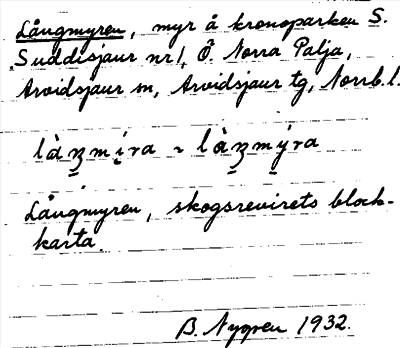 Långmyren, myr å kronoparken S.
Suddisjaur nr 1, Ö. Norra Palja,
Arvidsjaur sn, Arvidsjaur tg, Norrb. l.
Långmyren, skogsrevirets block-
karta.
B. Nygren 1932.